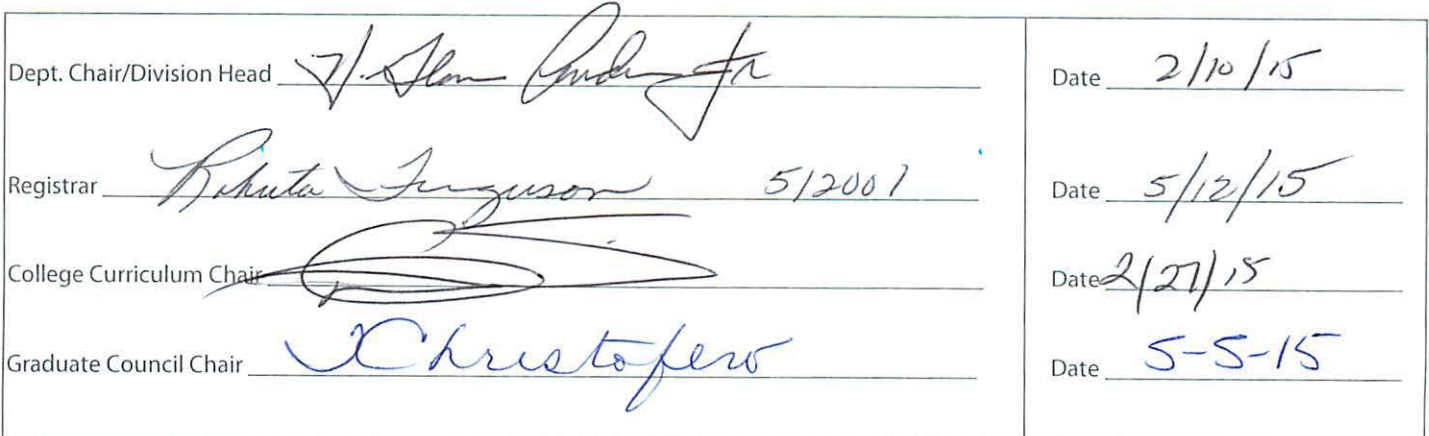 Dept. Chair/Division Head Jr Date 2/10/15
Registrar Ferguson 512001 Date 5/12/15
College Curriculum Chair Date 2/27/15
Graduate Council Chair Christofero Date 5-5-15